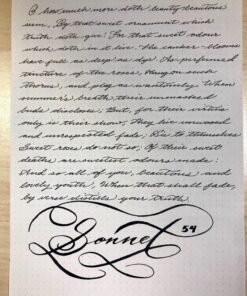 O how much more doth beauty beauteous
seem, By that sweet ornament which
truth doth give! For that sweet odour
which doth in it live. The canker-blooms
have full as deep as dye As the perfumed
tincture of the roses, Hang on such
thorns, and play as wantonly When
summer's breath their masked
buds discloses; But, for their virtue
only is their show, They live unwoo'd
and unrespected fade, Die to themselves
Sweet roses do not so; Of their sweet
deaths are sweetest odours made:
And so of you, beauteous and
lovely youth, When that shall fade,
by verse distills your truth.
Sonnet 54